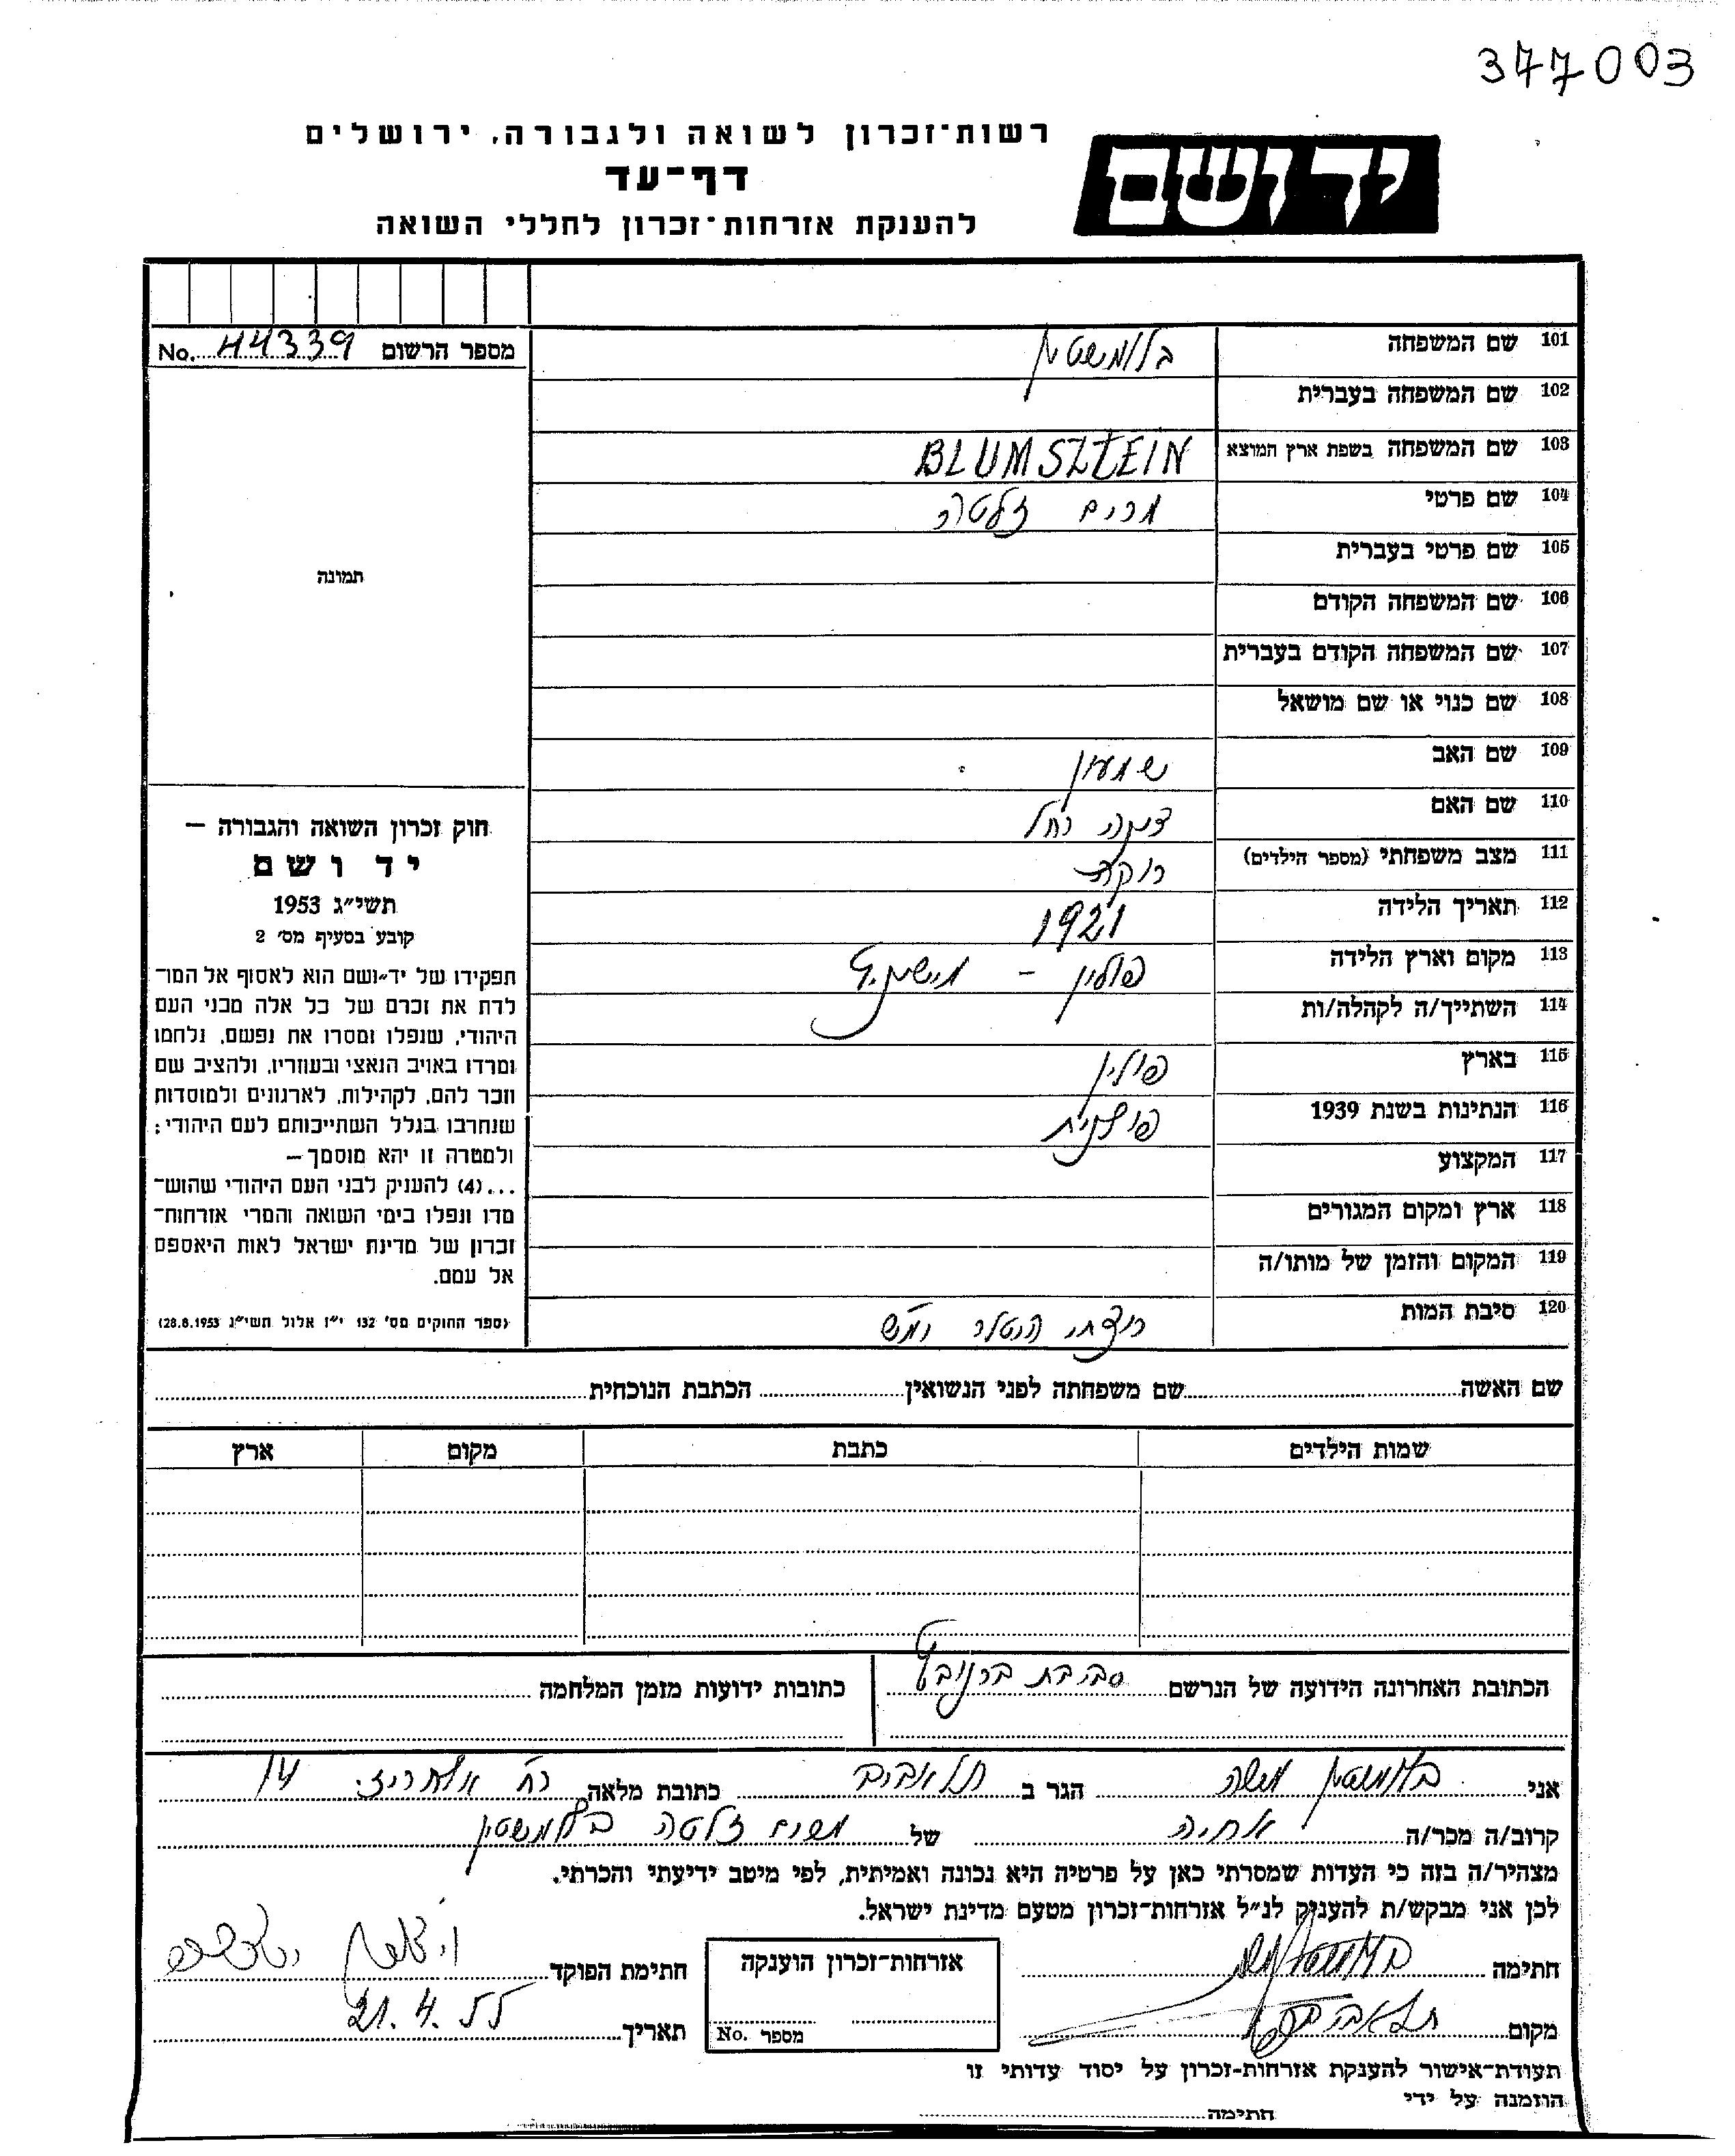 377003
רשות־זכרון לשואה ולגבורה, ירושלים
יד ושם
דף־עד
להענקת אזרחות־זכרון לחללי השואה
מספר הרשום No. 44339
תמונה
חוק זכרון השואה והגבורה –
יד ושם
תשי״ג 1953
קובע בסעיף מס׳ 2
תפקידו של יד־ושם הוא לאסוף אל המו־
לדת את זכרם של כל אלה מבני העם
היהודי, שנפלו ומסרו את נפשם, נלחמו
ומרדו באויב הנאצי ובעוזריו, ולהציב שם
וזכר להם, לקהילות, לארגונים ולמוסדות
שנחרבו בגלל השתייכותם לעם היהודי;
ולמטרה זו יהא מוסמך –
...(4) להעניק לבני העם היהודי שהוש־
מדו ונפלו בימי השואה והמרי אזרחות־
זכרון של מדינת ישראל לאות היאספם
אל עמם.
(ספר החוקים מס׳ 132 י״ז אלול תשי״ג 28.8.1953)
101 שם המשפחה בלומשטין
102 שם המשפחה בעברית
103 שם המשפחה בשפת ארץ המוצא BLUMSZTEIN
104 שם פרטי מרים זלטה
105 שם פרטי בעברית
106 שם המשפחה הקודם
107 שם המשפחה הקודם בעברית
108 שם כנוי או שם מושאל
109 שם האב שמעון
110 שם האם רחל
111 מצב משפחתי (מספר הילדים) רוקת
112 תאריך הלידה 1921
113 מקום וארץ הלידה פולין –
114 השתייך/ה לקהלה/ות
115 בארץ פולין
116 הנתינות בשנת 1939 פולנית
117 המקצוע
118 ארץ ומקום המגורים
119 המקום והזמן של מותו/ה
120 סיבת המות רוצחי היטלר ימ״ש
שם האשה שם משפחתה לפני הנשואין הכתבת הנוכחית
שמות הילדים כתבת מקום ארץ
הכתובת האחרונה הידועה של הנרשם סביבת
כתובות ידועות מזמן המלחמה
אני בלומשטין משה הגר ב תל אביב כתובת מלאה רח׳ 14
קרוב/ה מכר/ה אחיה של מרים זלטה בלומשטין
מצהיר/ה בזה כי העדות שמסרתי כאן על פרטיה היא נכונה ואמיתית, לפי מיטב ידיעתי והכרתי.
לכן אני מבקש/ת להעניק לנ״ל אזרחות־זכרון מטעם מדינת ישראל.
חתימה
אזרחות־זכרון הוענקה
חתימת הפוקד
מקום תל אביב
מספר No.
תאריך 21.4.55
תעודת־אישור להענקת אזרחות־זכרון על יסוד עדותי זו
הוזמנה על ידי
חתימה